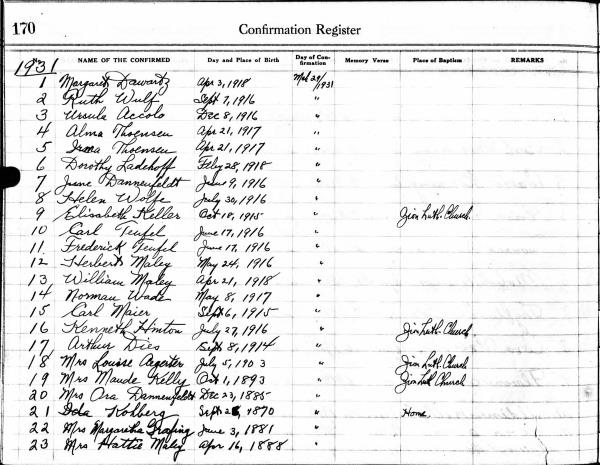 170 Confirmation Register
NAME OF THE CONFIRMED Day and Place of Birth Day of Confirmation Memory Verse Place of Baptism REMARKS
1931
1 Margaret Dawartz Apr 3, 1918 Mch 29/1931
2 Ruth Wulf Sept 7, 1916 "
3 Ursula Accolo Dec 8, 1916 "
4 Alma Thoensen Apr 21, 1917 "
5 Irma Thoensen Apr 21, 1917 "
6 Dorothy Ladehoff Feby 28, 1918 "
7 June Dannenfeldt June 9, 1916 "
8 Helen Wolfe July 30, 1916 "
9 Elisabeth Keller Oct 18, 1915 " Zion Luth. Church
10 Carl Teufel June 17, 1916 "
11 Frederick Teufel June 17, 1916 "
12 Herbert Maley May 24, 1916 "
13 William Maley Apr 21, 1918 "
14 Norman Wade May 8, 1917 "
15 Carl Maier Sept 6, 1915 "
16 Kenneth Hinton July 27, 1916 " Zion Luth. Church
17 Arthur Dies Sept 8, 1914 "
18 Mrs Louise Aegerter July 5, 1903 " Zion Luth. Church
19 Mrs Maude Kelly Oct 1, 1893 " Zion Luth Church
20 Mrs Ora Dannenfeldt Dec 23, 1885 "
21 Ida Kohberg Sept 1870 " Home
22 Mrs Margaretha June 3, 1881 "
23 Mrs Hattie Maley Apr 16, 1888 "